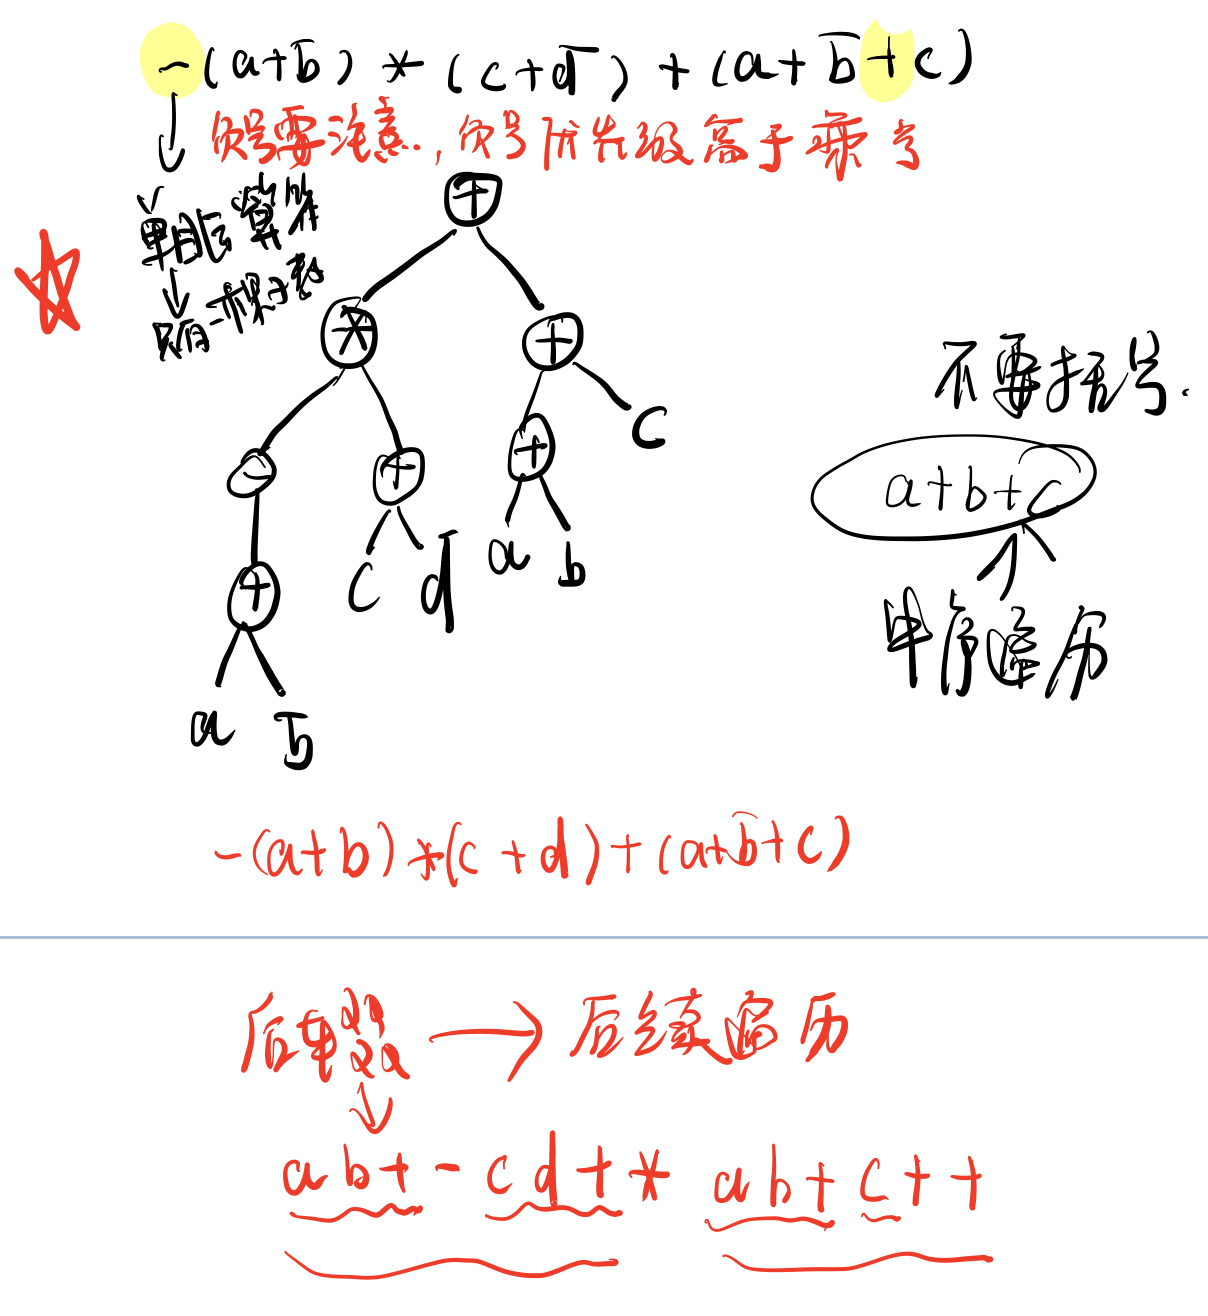 -(a+b)*(c+d)+(a+b+c)
负号要注意,负号优先级高于乘号
单目运算符
只有一棵子数
+
* +
- + + c
+ c d a b
a b
不要括号.
a+b+c
中序遍历
-(a+b)*(c+d)+(a+b+c)
后缀 → 后续遍历
ab+-cd+*ab+c++